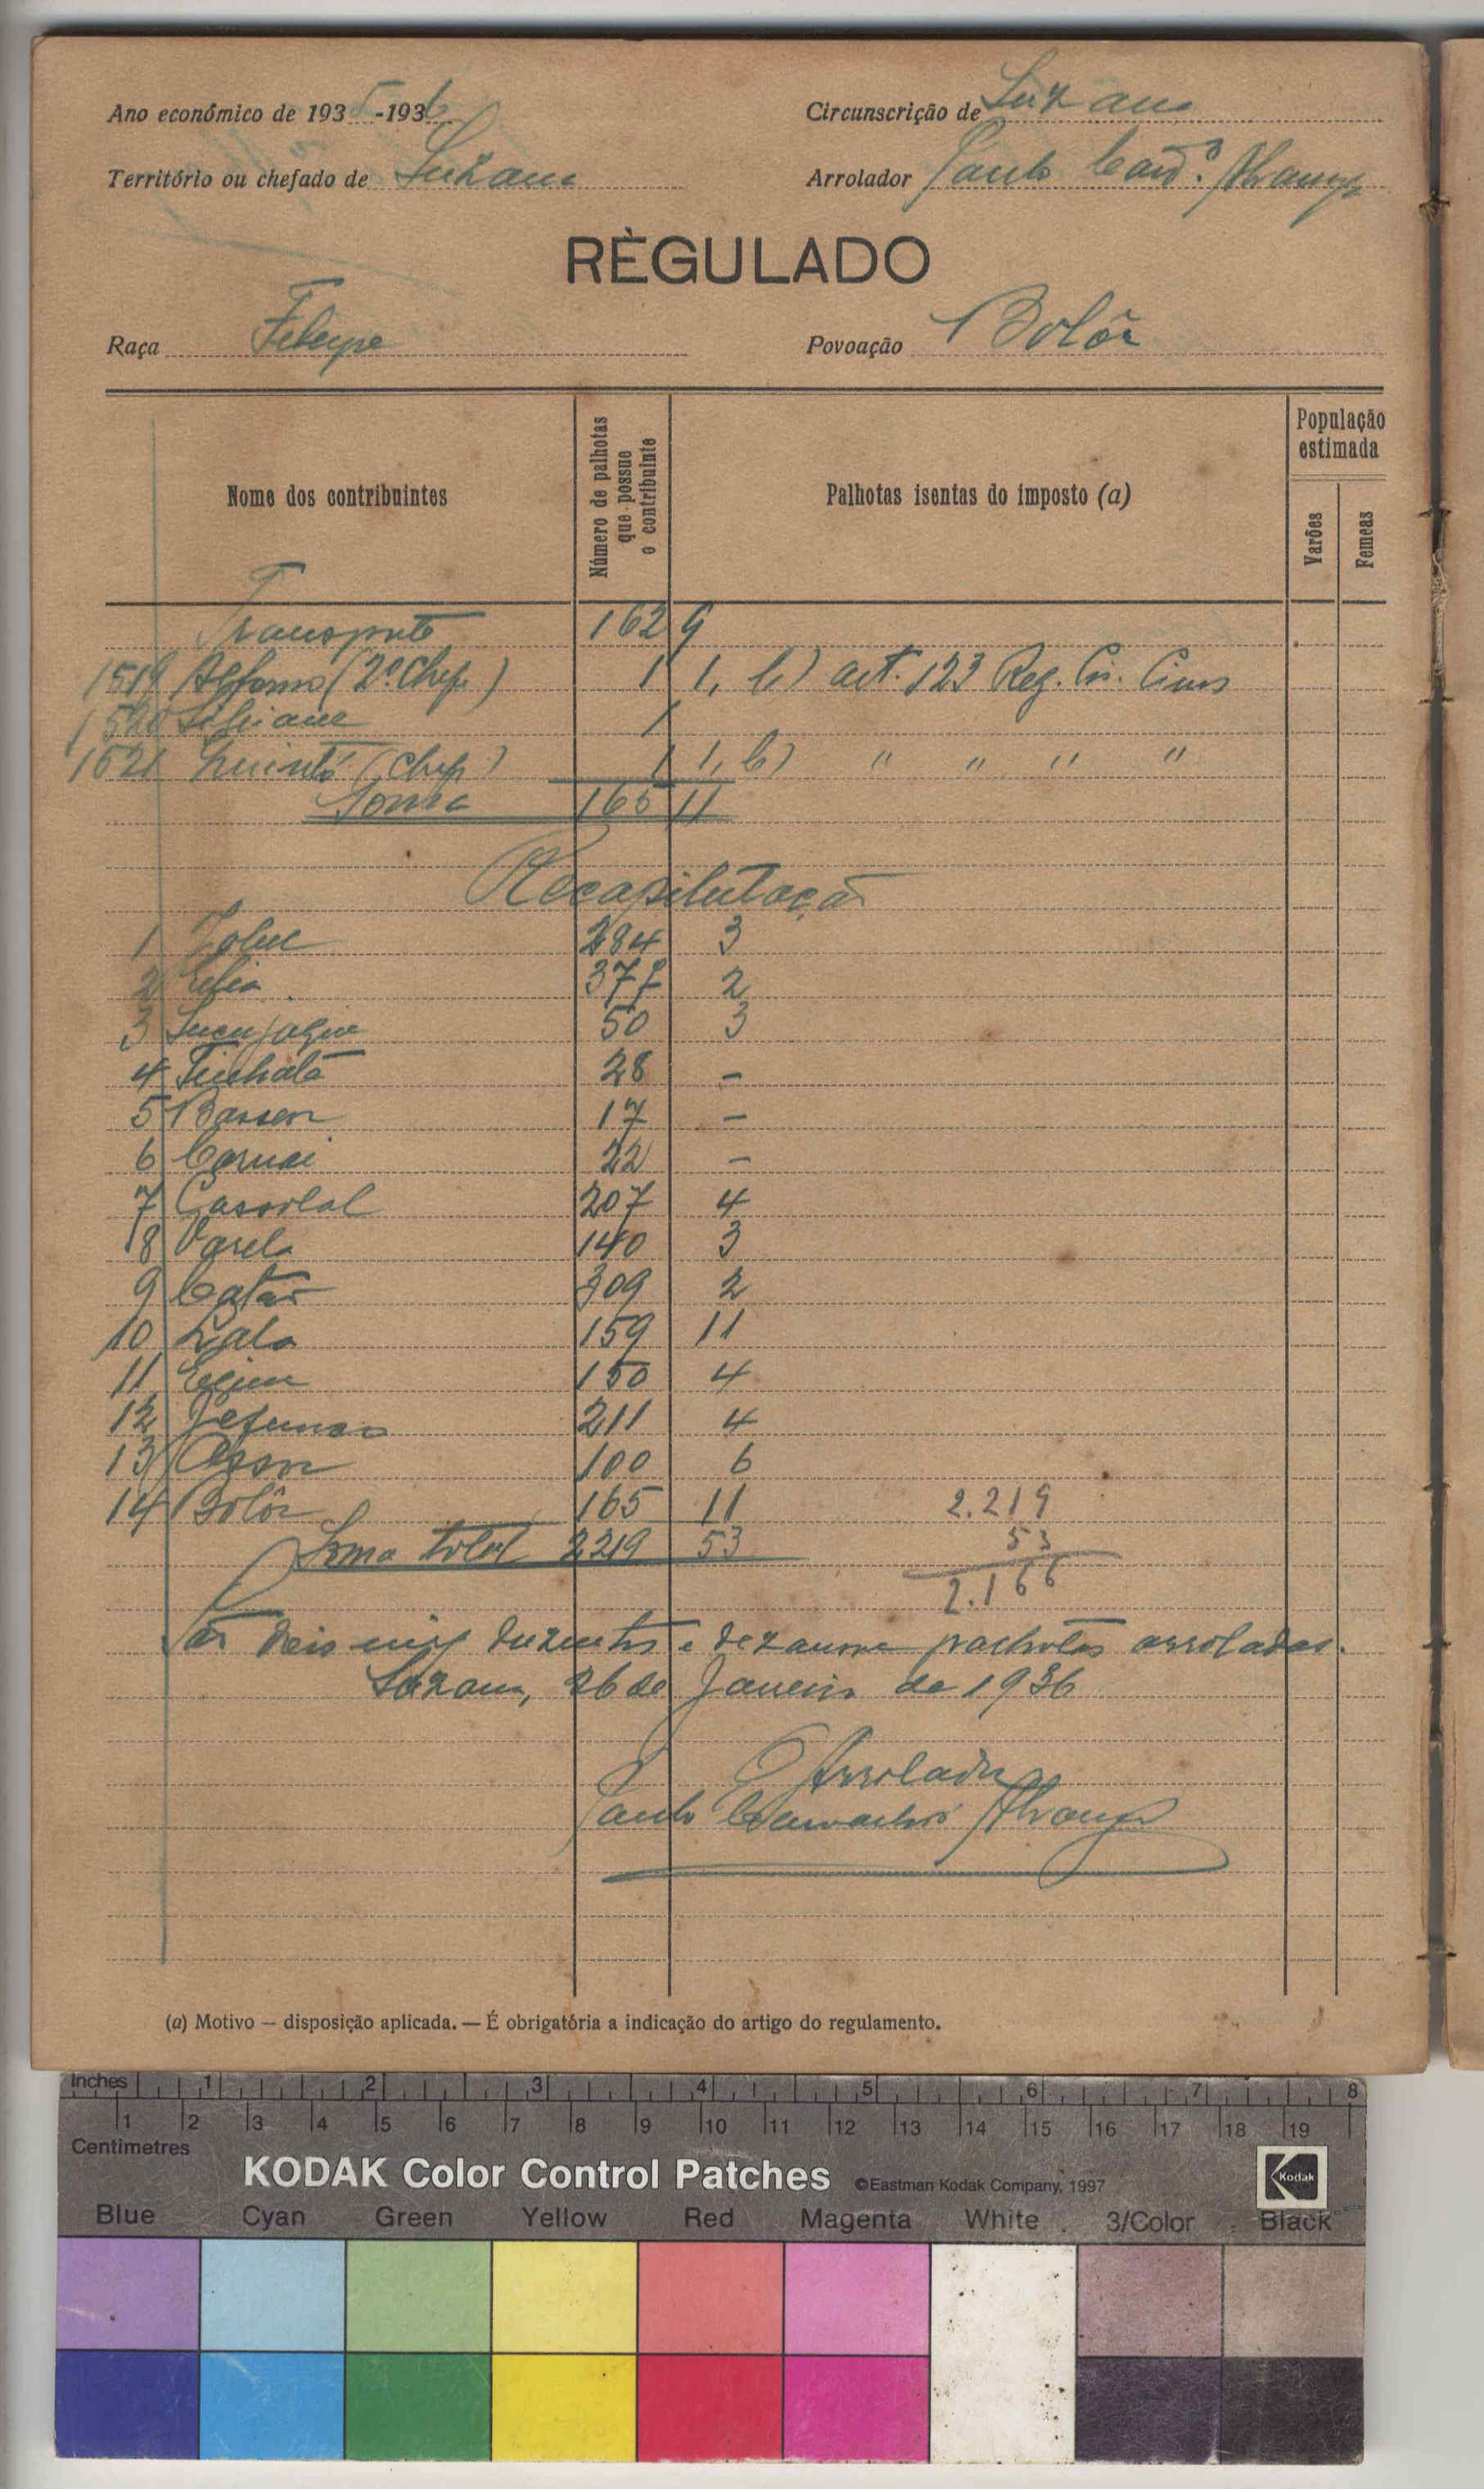 Ano económico de 1935-1936
Circunscrição de Suzana
Território ou chefado de Suzana
Arrolador Paulo
RÈGULADO
Raça Felupe
Povoação Bolôr
Nome dos contribuintes
Número de palhotas que possue o contribuinte
Palhotas isentas do imposto (a)
População estimada
Varões
Femeas
Transporte 162 9
1519 (2º Chefe) 1 1, b) art. 123 Reg. Cir. Civis
1520 1
1521 (Chefe) 1 1, b) " " " "
Soma 165 11
Recapitulação
1 284 3
2 377 2
3 Sucujaque 50 3
4 28 -
5 Basseor 17 -
6 22 -
7 Cassolol 207 4
8 Varela 140 3
9 Catão 309 2
10 Lala 159 11
11 Egine 150 4
12 Jefunco 211 4
13 Ossor 100 6
14 Bolôr 165 11
Soma total 2219 53
2.219
53
2.166
São dois mil duzentos e dezanove palhotas arroladas.
Suzana, 26 de Janeiro de 1936
O Arrolador
Paulo
(a) Motivo — disposição aplicada. — É obrigatória a indicação do artigo do regulamento.
Inches 1 2 3 4 5 6 7 8
1 2 3 4 5 6 7 8 9 10 11 12 13 14 15 16 17 18 19
Centimetres
KODAK Color Control Patches ©Eastman Kodak Company, 1997 Kodak
Blue Cyan Green Yellow Red Magenta White 3/Color Black